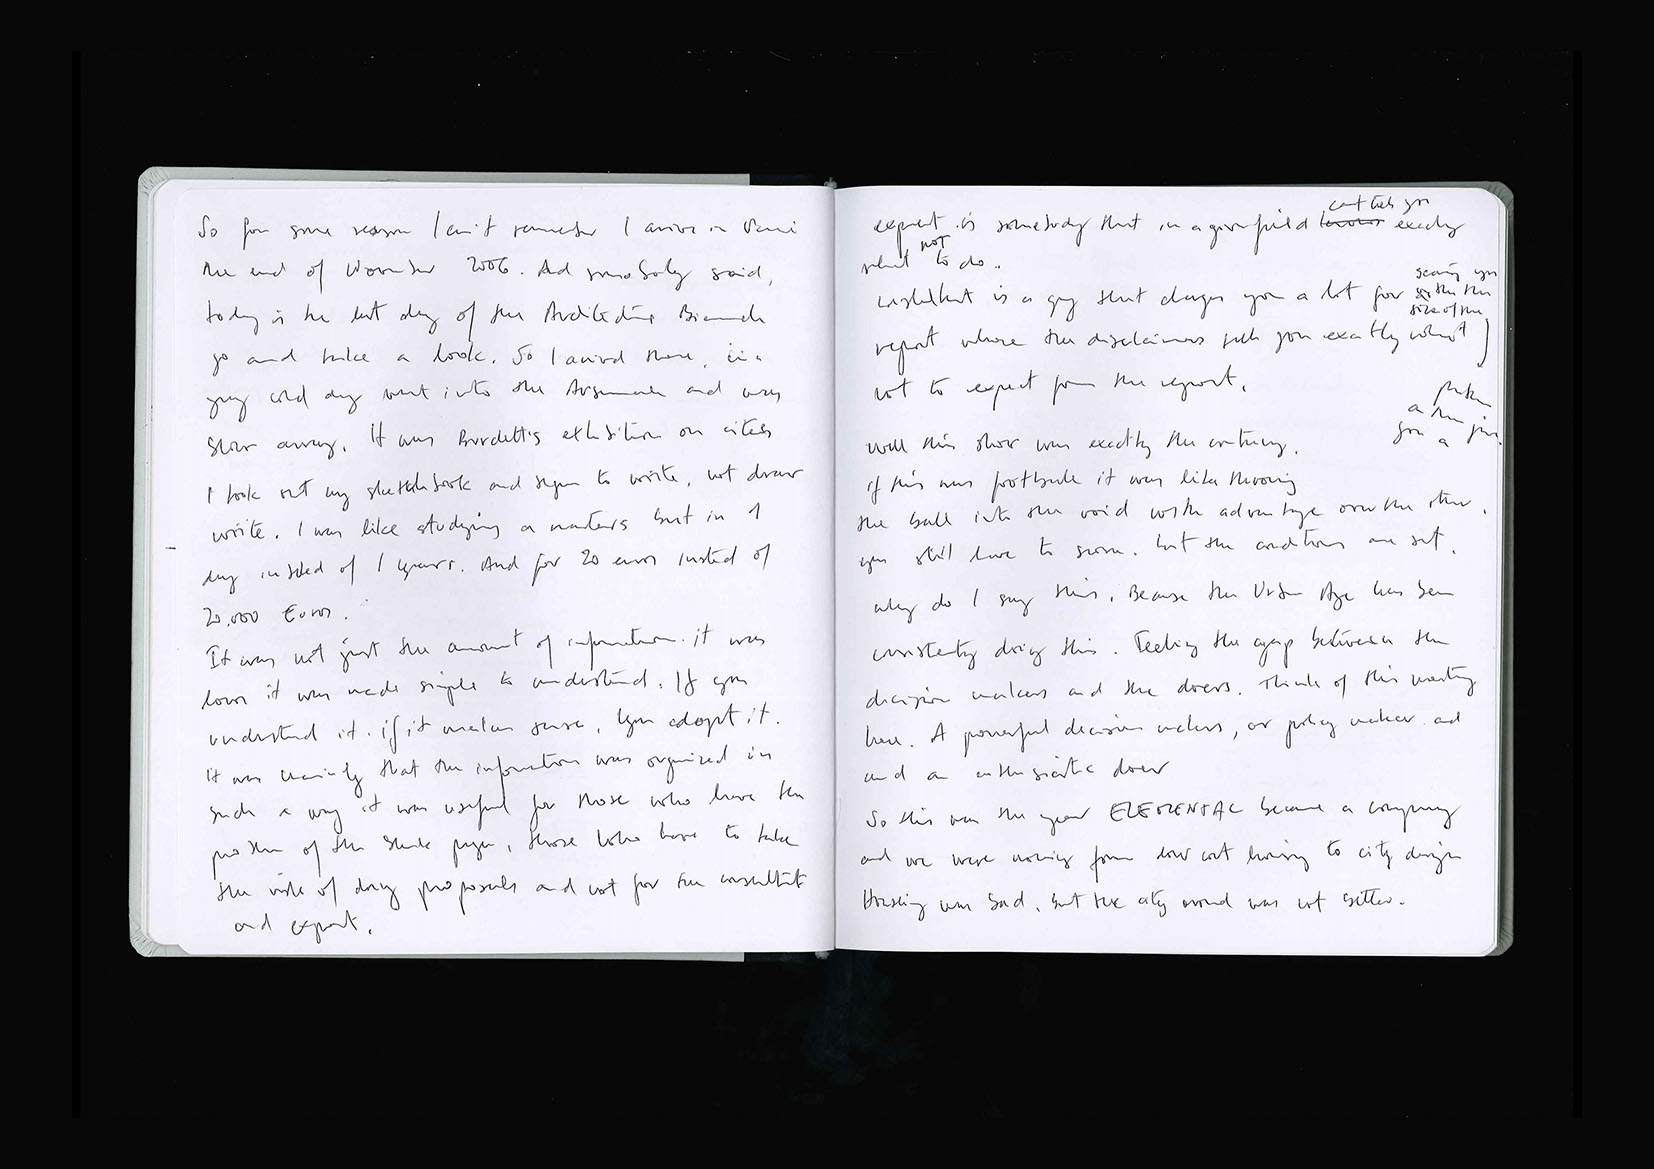 So for some reason I can't remember I arrive in
the end of November 2006. And somebody said,
today is the last day of the Architecture Biennale
go and take a look. So I arrived there, in a
grey cold day went into the Arsenale and was
blown away. It was Burdett's exhibition on cities
I took out my sketchbook and began to write, not draw
write. I was like studying a masters but in 1
day insted of 1 years. And for 20 euros insted of
20.000 Euros.
It was not just the amount of information. it was
how it was made simple to understand. If you
understand it. if it makes sense, you adopt it.
it was mainly that the information was organized in
such a way it was useful for those who have the
of the page, those who have to take
the risk of doing proposals and not for the consultant
and expert.
expert is somebody that in a given field can tell you exactly
what not to do.
consultant is a guy that charges you a lot for scaring you with the size of the
report where the disclaimers tell you exactly what
not to expect from the report.
well this show was exactly the contrary.
if this was football it was like throwing
the ball into the void with advantage over the other.
you still have to score. but the conditions are set.
why do I say this. Because the Urban Age has been
consistently doing this. Feeling the gap between the
decision makers and the doers. Think of this meeting
here. A powerful decision makers, or policy maker and
and an enthusiastic doer
So this was the year ELEMENTAL became a company
and we were moving from low cost housing to city design
Housing was bad, but the city around was not better.